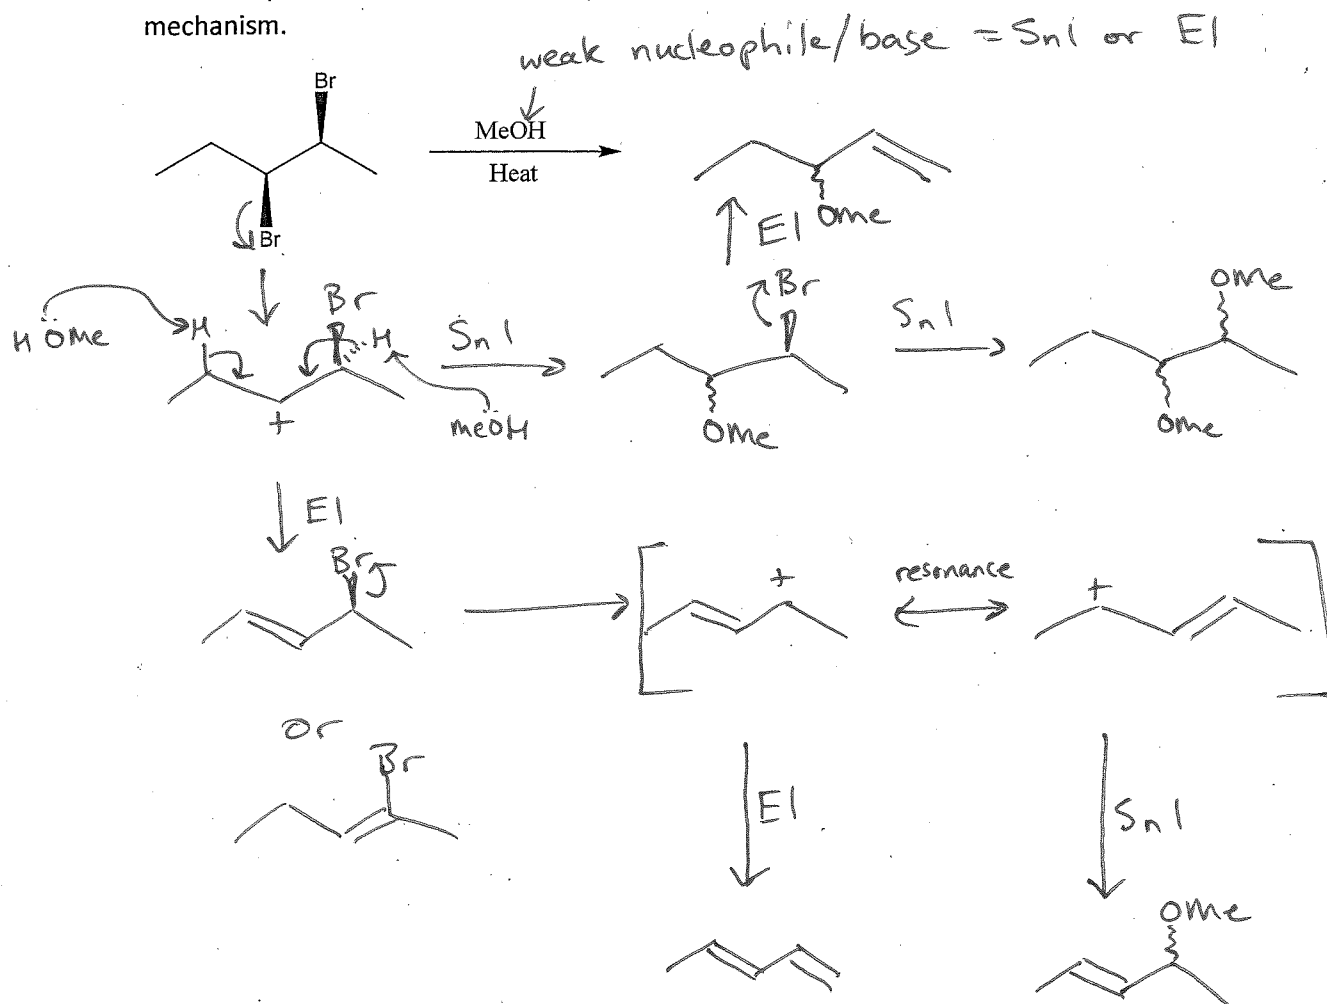 mechanism.
weak nucleophile/base = Sn1 or E1
Br
MeOH
Heat
Br
OMe
E1
Br
Br
OMe
HÖMe
H
H
Sn1
Sn1
+
meöH
OMe
OMe
E1
Br
+
resonance
+
or
Br
E1
Sn1
OMe